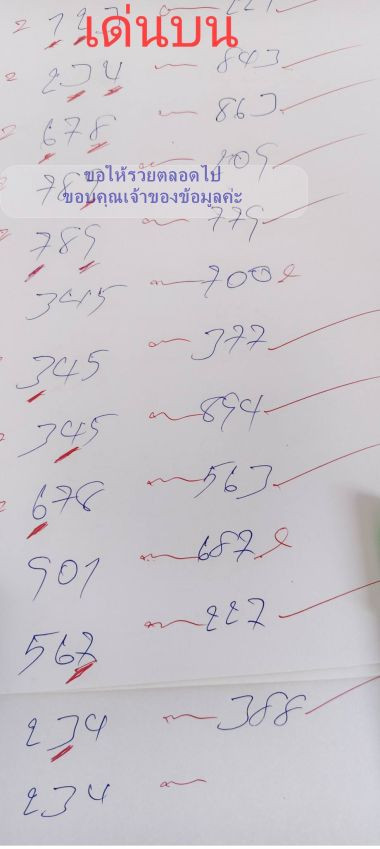 เด่นบน
234 843
678 863
109
ขอให้รวยตลอดไป
ขอบคุณเจ้าของข้อมูลค่ะ
779
789
345 700
345 377
345 894
678 563
901 687
567 227
234 388
234